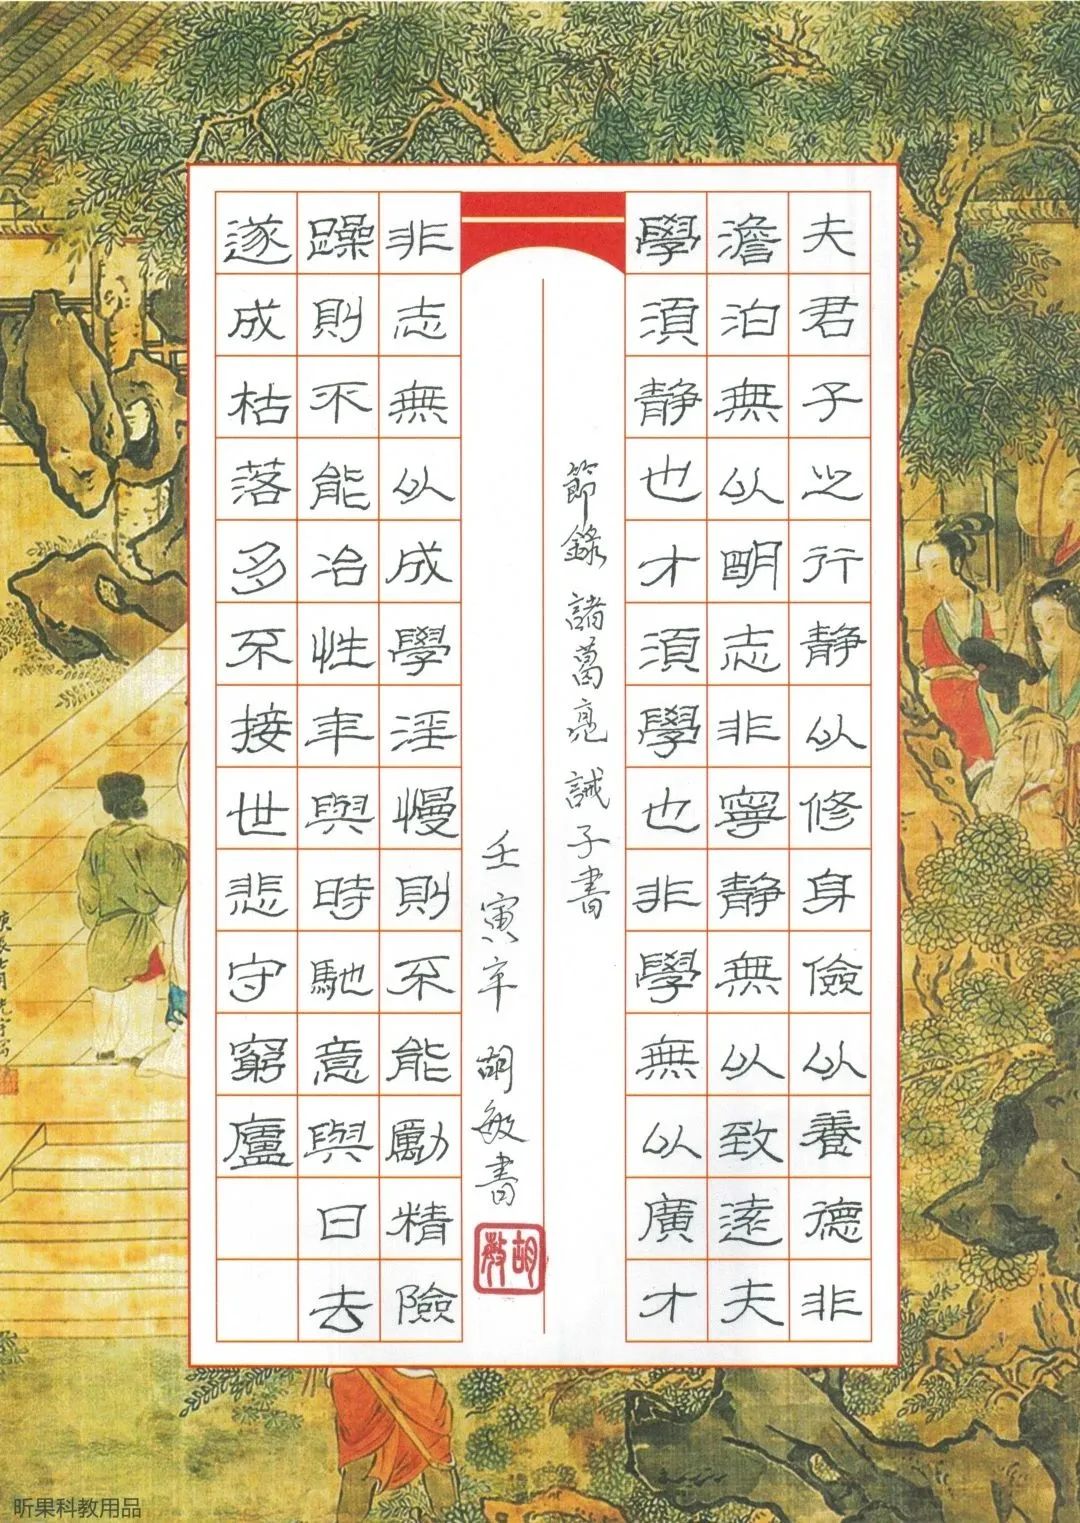 夫君子之行静以修身儉以養德非
澹泊無以明志非寧静無以致遠夫
學須静也才須學也非學無以廣才
節錄諸葛亮誡子書
壬寅年胡敏書
胡敏
非志無以成學淫慢則不能勵精險
躁則不能冶性年與時馳意與日去
遂成枯落多不接世悲守窮廬
昕果科教用品